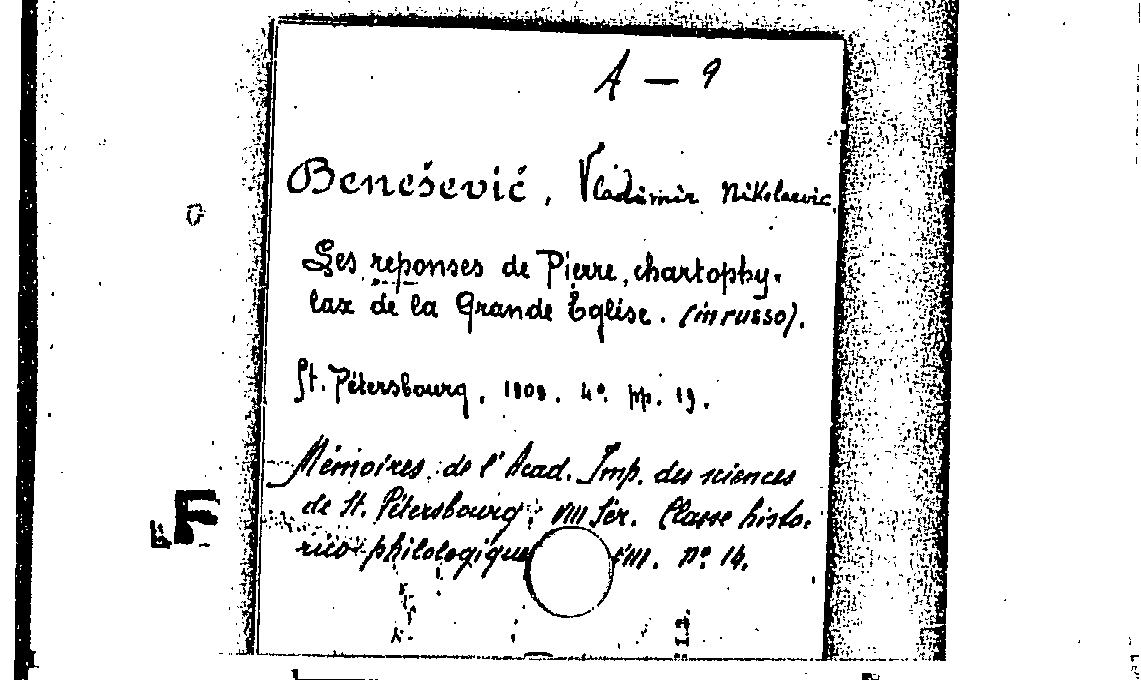 A — 9
Benešević, Vladimir Nikolaevic.
Les reponses de Pierre, chartophy-
lax de la Grande Eglise. (in russo).
St. Pétersbourg, 1909. 4º. pp. 19.
Mémoires de l'Acad. Imp. des sciences
de St. Pétersbourg; VIII Ser. Classe histo-
rico-philologique VIII. nº 14.